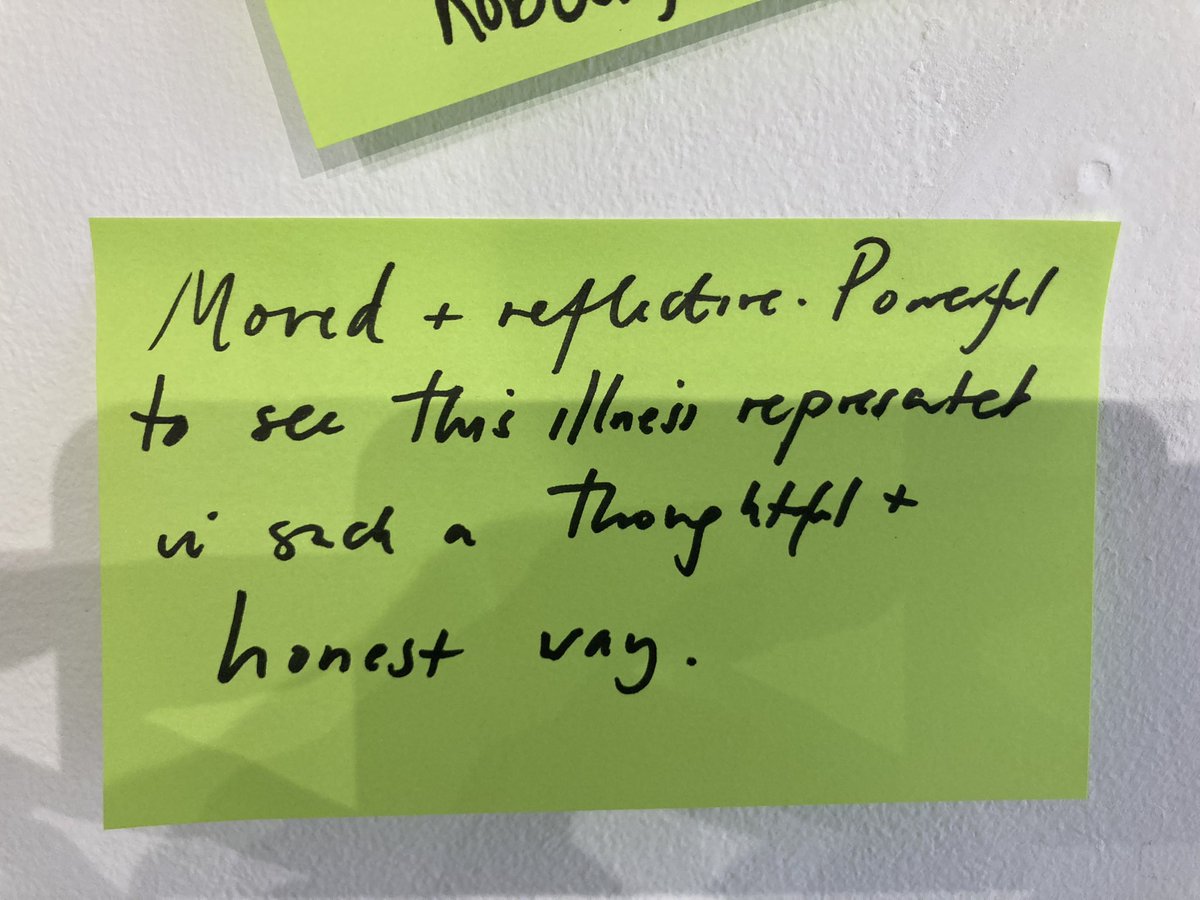 Moved + reflective. Powerful
to see this illness represented
in such a thoughtful +
honest way.